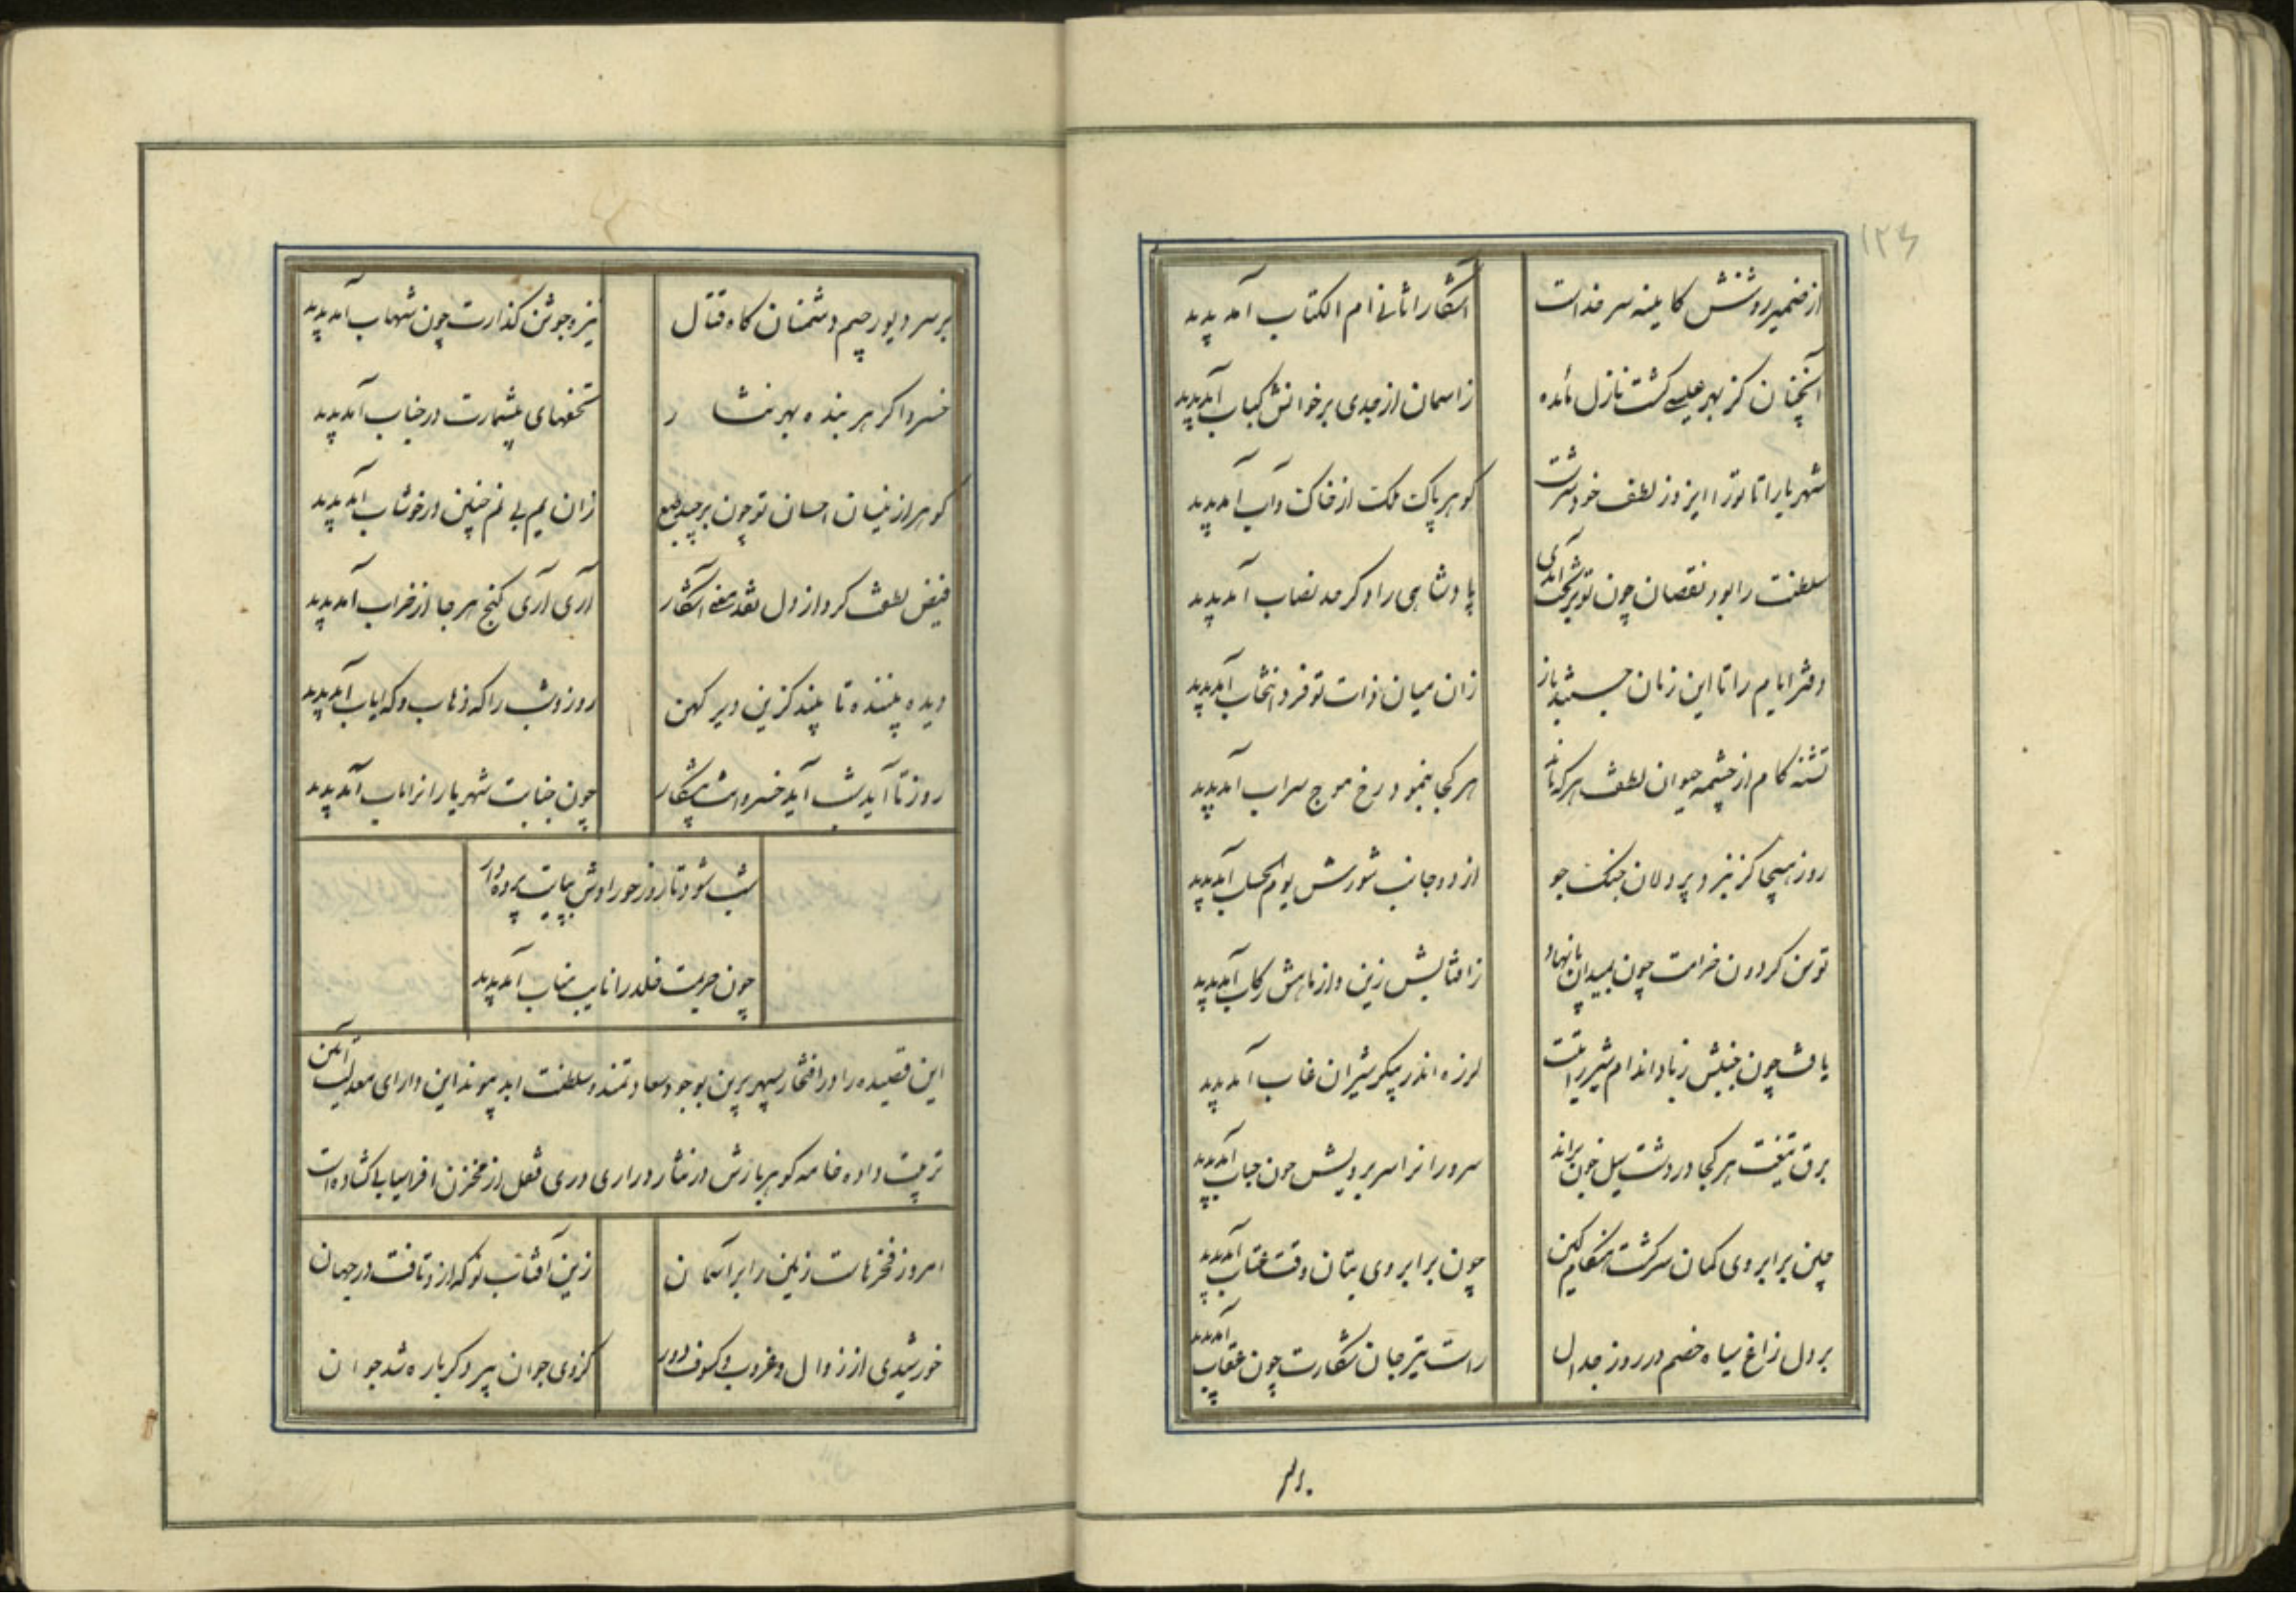 ۱۲۶
از ضمیر روشنش کایینه سر خداست
آشکارا ثانی ام الکتاب آمد پدید
آنچنان کز بهر عیسی کشت نازل مائده
ز اسمان از جدی بر خوانش کباب آمد پدید
شهریارا تا تورا ایزد ز لطف خود سرشت
کوهر پاکت ملک از خاک و آب آمد پدید
سلطنت را بود نقصان چون تو بر تخت آمدی
پادشاهی را دکر حد نصاب آمد پدید
دفتر ایام را تا این زمان جستند باز
زان میان ذات تو فرد انتخاب آمد پدید
تشنه کام از چشمه حیوان لطفت هر که ماند
هر کجا بنمود رخ موج سراب آمد پدید
روز هیجا کز نبرد پر دلان جنک جو
از دو جانب شورش یوم الحساب آمد پدید
توسن کردون خرامت چون بمیدان پا نهاد
ز افتابش زین و از ماهش رکاب آمد پدید
یافت چون جنبش ز باد اندام شیر رایتت
لرزه اندر پیکر شیران غاب آمد پدید
برق تیغت هر کجا در دشت سیل خون براند
سرورانرا سر برویش چون حباب آمد پدید
چین بر ابروی کمان سرکشت هنکام کین
چون بر ابروی بتان وقت عتاب آمد پدید
بر دل زاغ سیاه خصم در روز جدال
راست تیر جان شکارت چون عقاب آمد پدید
بر سر دیو رجیم دشمنان کاه قتال
نیزه جوشن کذارت چون شهاب آمد پدید
خسروا کر هر بنده بهر نثار
تحفهای بیشمارت در جناب آمد پدید
کوهر از نیسان احسان تو چون برچید طبع
زان یم بی نم چنین در خوشاب آمد پدید
فیض لطفت کرد از دل نقد معنی آشکار
آری آری کنج هر جا از خراب آمد پدید
دیده بیننده تا بیند کزین دیر کهن
روز و شب را که ذهاب و که ایاب آمد پدید
روز تا آید شب آید خسروانت پیشکار
چون جنابت شهریارانرا ماب آمد پدید
شب شود تا روز حورا وش بپایت پرده دار
چون حریمت خلد را نایب مناب آمد پدید
این قصیده را در افتخار سپهر برین بوجود سعادتمند و سلطنت ابد پیوند این دارای معدلت آیین
ترتیب داده خامه کوهر بارش در نثار دراری دری قفل از مخزن افراسیابی کشاده است
امروز فخرهاست زمین را بر آسمان
زین آفتاب نو که ازو تافت در جهان
خورشیدی از زوال و غروب و کسوف دور
کزوی جوان پیر دکر باره شد جوان